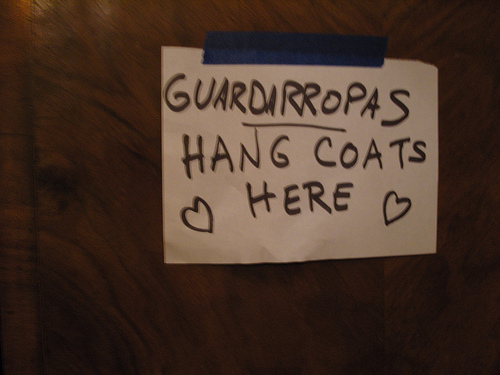 GUARDARROPAS
HANG COATS
HERE